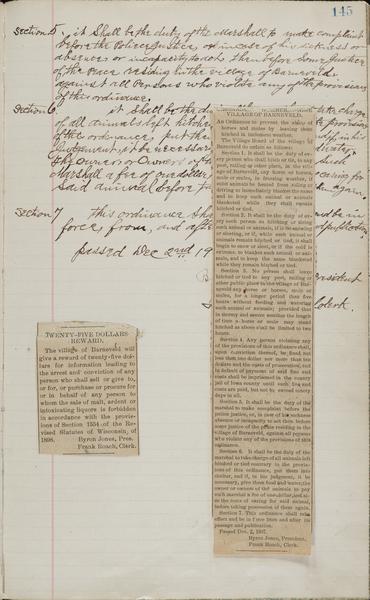 145
Section 5. it shall be the duty of the Marshall to make complaint
before the Police Justice, or in case of his sickness or
absence, or incapacity to act, then before some Justice
of the Peace residing in the village of Barneveld
against all Persons who violate any of the provisions
of this ordinance.
Section 6. it shall be the du
of all animals left hitched
of the ordinance, put the
Judgement, it be necessary
The owners or owners of th
Marshall a fee of one dollar
said animal before t
Section 7 This ordinance sha
force, from, and after
passed Dec 2nd 19
President
Clerk.
TWENTY-FIVE DOLLARS
REWARD.
The village of Barneveld will
give a reward of twenty-five dol-
lars for information leading to
the arrest and conviction of any
person who shall sell or give to,
or for, or purchase or procure for
or in behalf of any person to
whom the sale of malt, ardent or
intoxicating liquore is forbidden
in accordance with the provis-
ions of Section 1554 of the Re-
vised Statutes of Wisconsin, of
1898.
Byron Jones, Pres.
Frank Roach, Clerk.
VILLAGE OF BARNEVELD.
An Ordinance to prevent the abuse of
horses and mules by leaving them
hitched in inclement weather.
The Village Board of the village of
Barneveld do ordain as follows:
Section 1. It shall be the duty of ev-
ery person who shall hitch or tie, to any
post, railing or other place, in the vil-
lage of Barneveld, any horse or horses,
mule or mules, in freezing weather, if
said animals be heated from riding or
driving to immediately blanket the same
and to keep such animal or animals
blanketed while they shall remain
hitched or tied.
Section 2. It shall be the duty of ev-
ery such person so hitching or storing
such animal or animals, if it be snowing
or sleeting, or if, while such animal or
animals remain hitched or tied, it shall
begin to snow or sleet, or if the cold be
extreme, to blanket such animal or ani-
mals, and to keep the same blanketed
while they remain hitched or tied.
Section 3. No person shall leave
hitched or tied to any post, railing or
other public place in the village of Bar-
neveld any horse or horses, mule or
mules, for a longer period than five
hours without feeding and watering
such animal or animals; provided that
in stormy and severe weather the length
of time a horse or mule may stand
hitched as above shall be limited to two
hours.
Section 4. Any person violating
any of the provisions of this ordinance shall,
upon conviction thereof, be fined, not
less than one dollar nor more than ten
dollars and the costs of prosecution, and
in default of payment of said fine and
costs shall be imprisoned in the county
jail of Iowa county until such fine and
costs are paid, but not to exceed ninety
days in all.
Section 5. It shall be the duty of the
marshal to make complaint before the
police justice, or, in case of his sickness
absence or incapacity to act then before
some justice of the peace residing in the
village of Barneveld, against all persons
who violate any of the provisions of this
ordinance.
Section 6. It shall be the duty of the
marshal to take charge of all animals left
hitched or tied contrary to the provis-
ions of this ordinance, put them into
shelter, and if, in his judgment, it be
necessary, give them food and water; the
owner or owners of the animals to pay
such marshal a fee of one dollar, and al-
so the costs of caring for said animal,
before taking possession of them again.
Section 7. This ordinance shall take
effect and be in force from and after its
passage and publication.
Passed Dec. 2, 1907.
Byron Jones, President.
Frank Roach, Clerk.